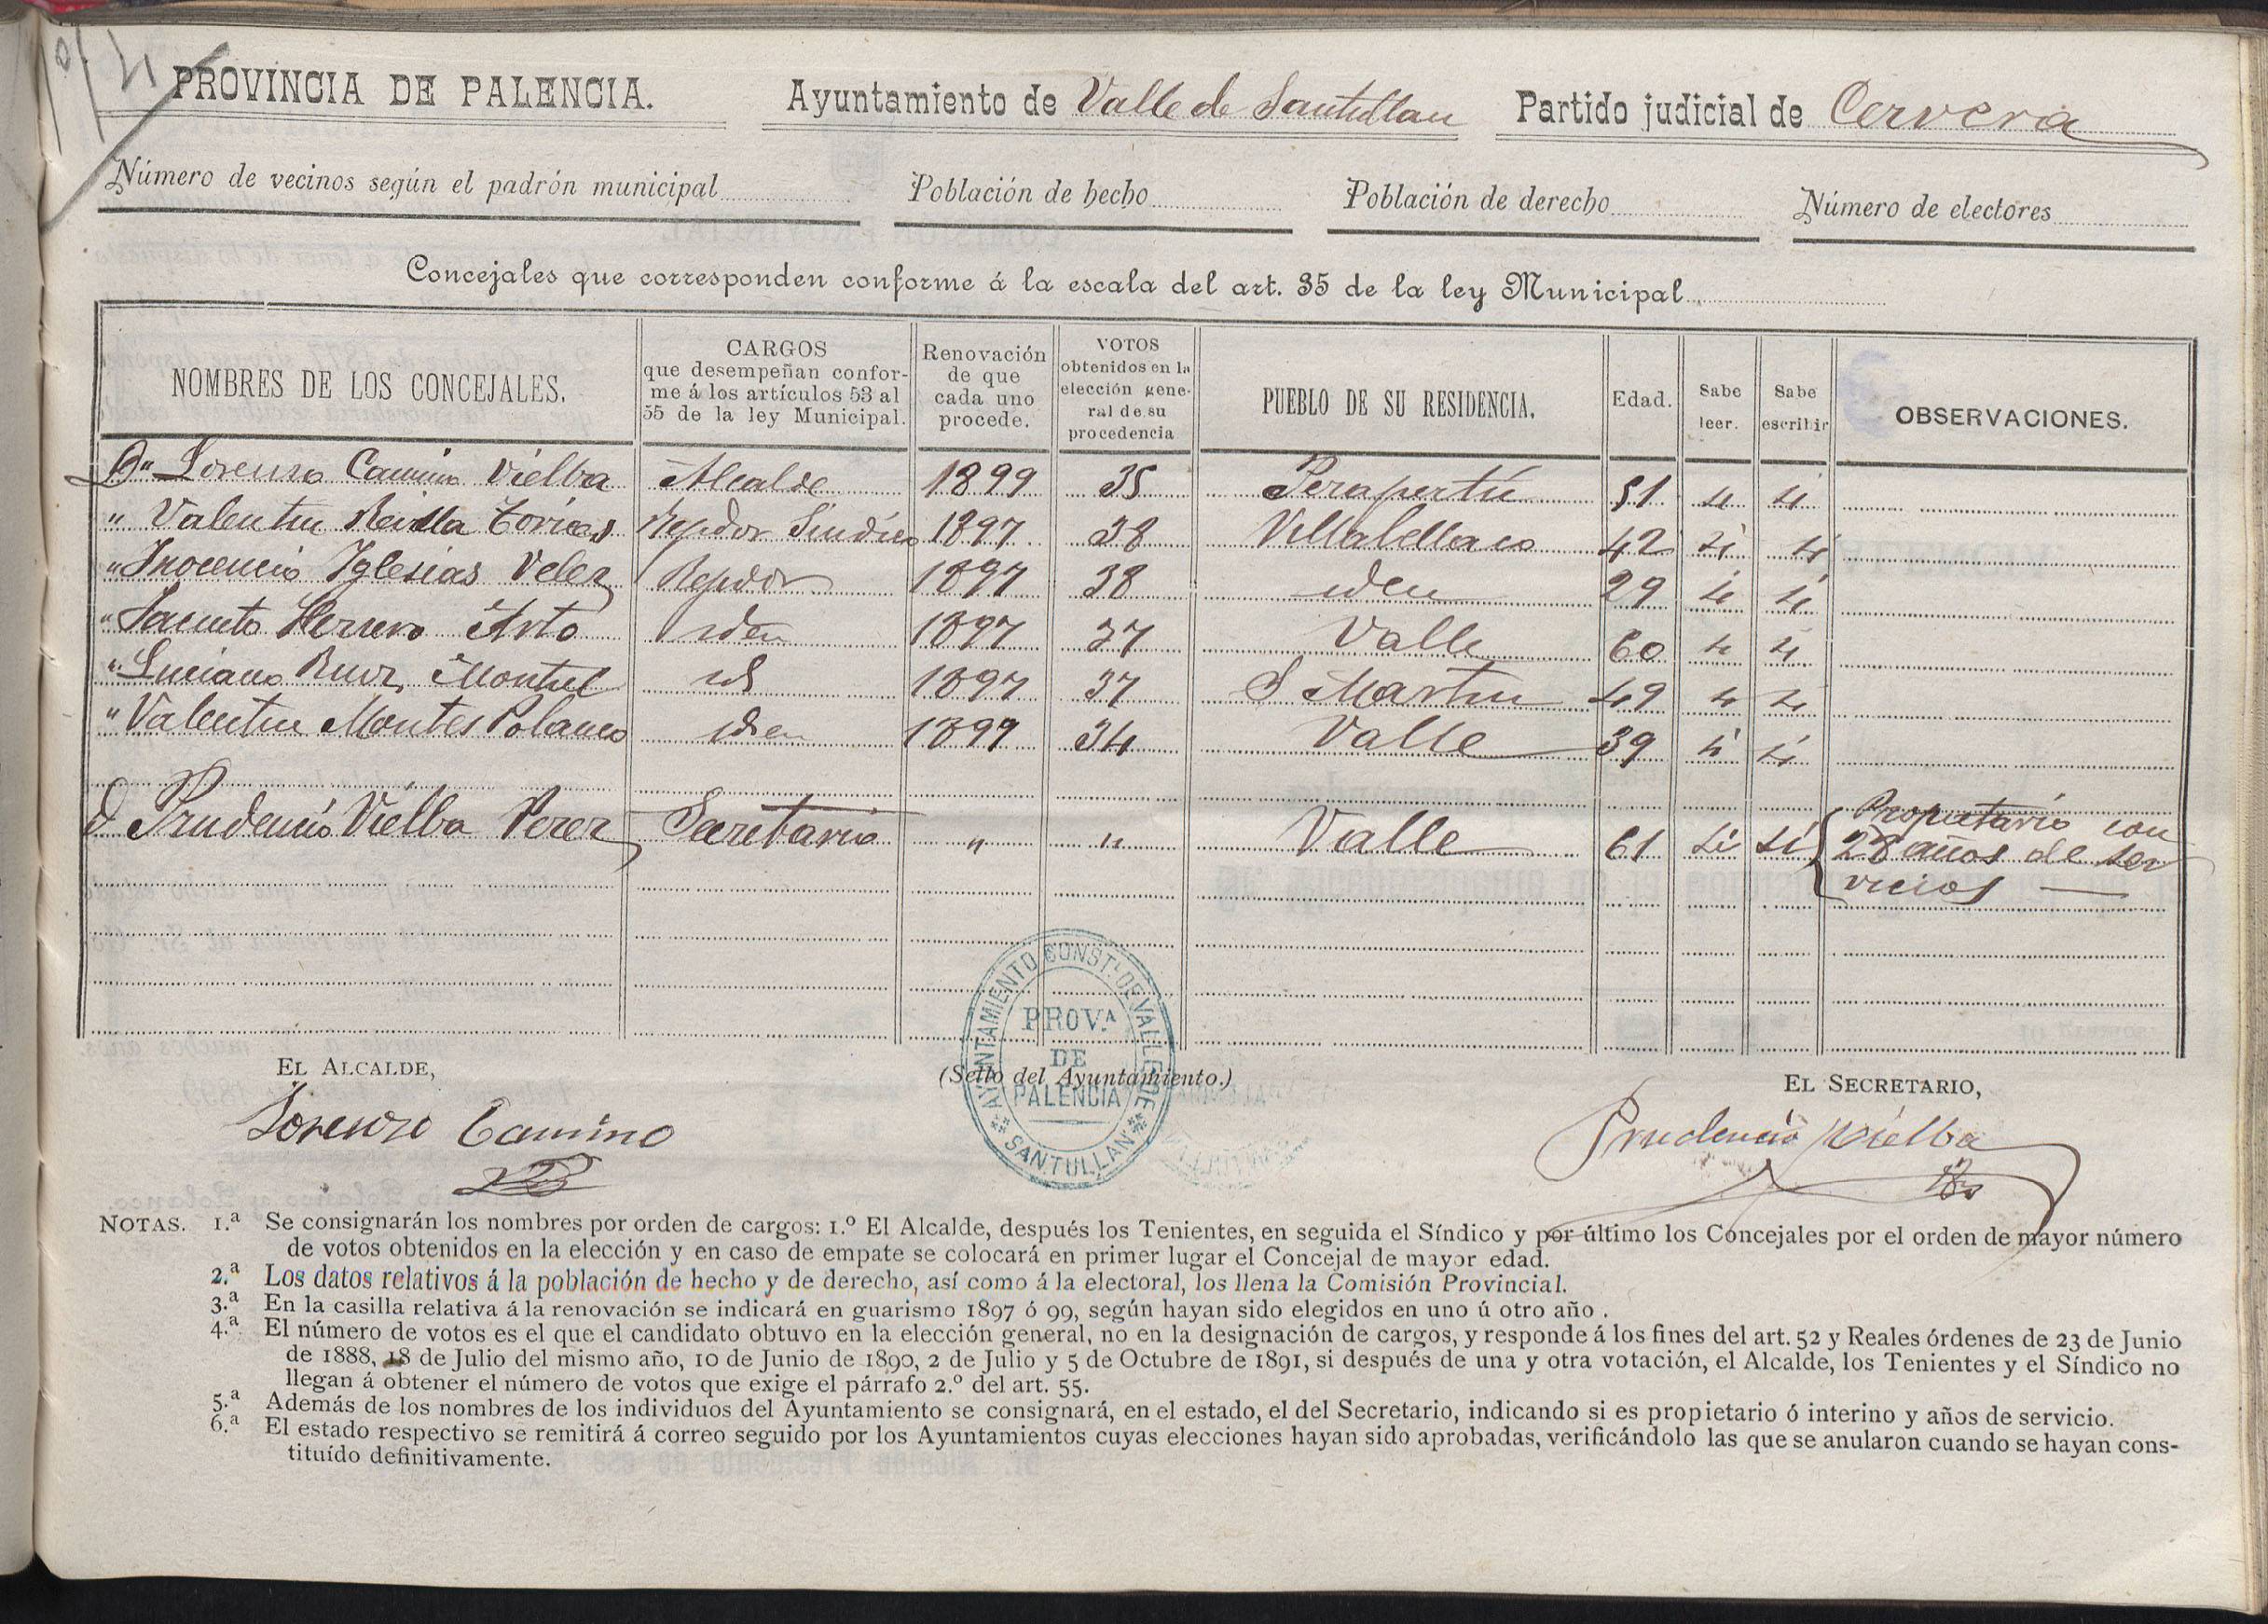 PROVINCIA DE PALENCIA. Ayuntamiento de Valle de Santullan Partido judicial de Cervera
Número de vecinos según el padrón municipal Población de hecho Población de derecho Número de electores
Concejales que corresponden conforme á la escala del art. 35 de la ley Municipal
NOMBRES DE LOS CONCEJALES. CARGOS que desempeñan conforme á los artículos 53 al 55 de la ley Municipal. Renovación de que cada uno procede. VOTOS obtenidos en la elección general de su procedencia PUEBLO DE SU RESIDENCIA. Edad. Sabe leer. Sabe escribir OBSERVACIONES.
Dn Lorenzo Camino Vielba Alcalde 1899 35 Perapertú 51 si si
" Valentin Revilla Rejidor Sindico 1897 38 Villabellaco 42 si si
" Inocencio Iglesias Velez Rejidor 1897 38 iden 29 si si
" Jacinto Herrero Arto iden 1897 37 Valle 60 si si
" Luciano Ruiz Montiel id 1897 37 S Martin 49 si si
" Valentin Montes Polanco iden 1899 34 Valle 39 si si
D Prudencio Vielba Perez Secretario " " Valle 61 si si Propietario con
28 años de ser
vicios
AYUNTAMIENTO CONST.L DE VALLE DE SANTULLAN
PROV.A
DE
PALENCIA
EL ALCALDE, (Sello del Ayuntamiento.) EL SECRETARIO,
Lorenzo Camino Prudencio Vielba
NOTAS. 1.ª Se consignarán los nombres por orden de cargos: 1.º El Alcalde, después los Tenientes, en seguida el Síndico y por último los Concejales por el orden de mayor número
de votos obtenidos en la elección y en caso de empate se colocará en primer lugar el Concejal de mayor edad.
2.ª Los datos relativos á la población de hecho y de derecho, así como á la electoral, los llena la Comisión Provincial.
3.ª En la casilla relativa á la renovación se indicará en guarismo 1897 ó 99, según hayan sido elegidos en uno ú otro año .
4.ª El número de votos es el que el candidato obtuvo en la elección general, no en la designación de cargos, y responde á los fines del art. 52 y Reales órdenes de 23 de Junio
de 1888, 18 de Julio del mismo año, 10 de Junio de 1890, 2 de Julio y 5 de Octubre de 1891, si después de una y otra votación, el Alcalde, los Tenientes y el Síndico no
llegan á obtener el número de votos que exige el párrafo 2.º del art. 55.
5.ª Además de los nombres de los individuos del Ayuntamiento se consignará, en el estado, el del Secretario, indicando si es propietario ó interino y años de servicio.
6.ª El estado respectivo se remitirá á correo seguido por los Ayuntamientos cuyas elecciones hayan sido aprobadas, verificándolo las que se anularon cuando se hayan cons-
tituído definitivamente.